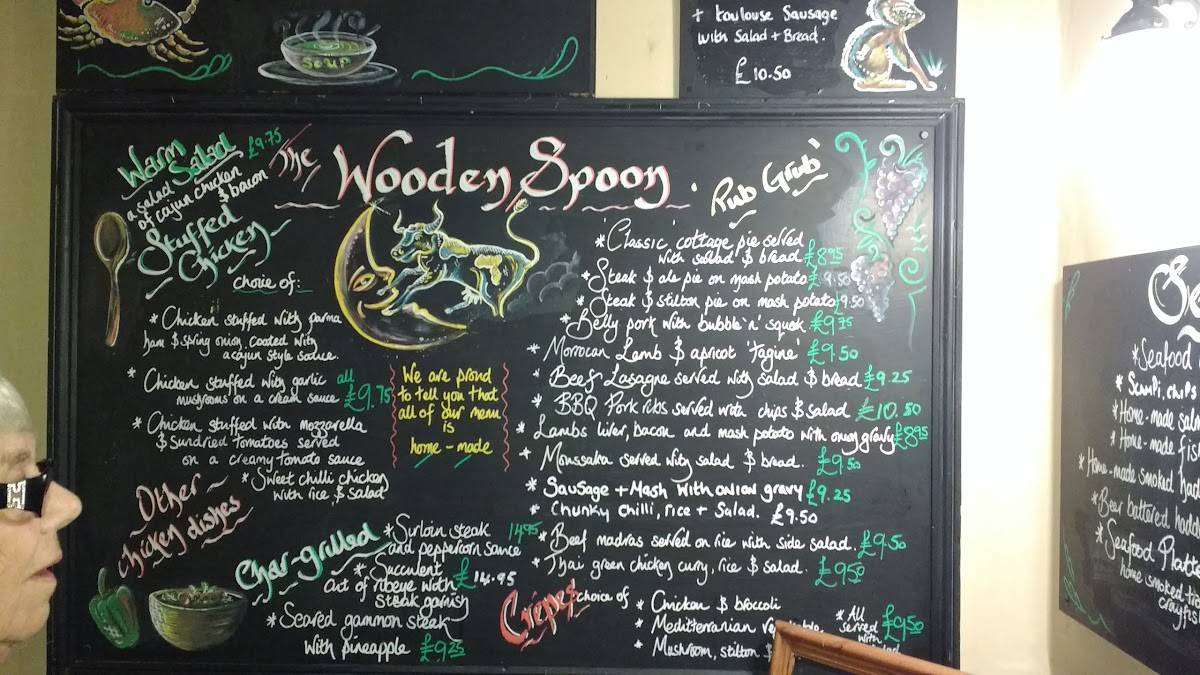 SOUP
+ toulouse Sausage
with Salad + Bread.
£10.50
The Wooden Spoon.
Warm
Salad £9.75
a salad
of cajun chicken
$ bacon
Stuffed
Chicken
choice of:
* Chicken stuffed with parma
ham $ spring onion, coated with
a cajun style sauce.
* Chicken stuffed with garlic
mushrooms on a cream sauce
all
£9.75
* Chicken stuffed with mozzarella
$ sundried tomatoes served
on a creamy tomato sauce
* Sweet chilli chicken
with rice $ salad
Other
chicken dishes
We are proud
to tell you that
all of our menu
is
home-made
Char-grilled
* Sirloin steak 14.95
and peppercorn sauce
* Succulent
cut of ribeye with £14.95
steak garnish
* Seared gammon steak
with pineapple £9.25
'Pub Grub'
* 'Classic' cottage pie served
with salad $ bread £8.95
* Steak $ ale pie on mash potato £9.50
* Steak $ stilton pie on mash potato £9.50
* Belly pork with bubble 'n' squeak £9.75
* Morrocan Lamb $ apricot 'tagine' £9.50
* Beef Lasagne served with salad $ bread £9.25
* BBQ Pork ribs served with chips $ salad £10.50
* Lambs liver, bacon and mash potato with onion gravy £8.95
* Moussaka served with salad $ bread. £9.50
* Sausage + Mash with onion gravy £9.25
* Chunky chilli, rice + Salad. £9.50
* Beef madras served on rice with side salad. £9.50
* Thai green chicken curry, rice $ salad. £9.50
Crêpes choice of
* Chicken $ broccoli
* Mediterranian
* Mushroom, stilton $
* All
served
with
£9.50
* Seafood
* Scampi, chips
* Home-made
* Home-made
* Home-made smoked
* Beer battered
* Seafood
home smoked